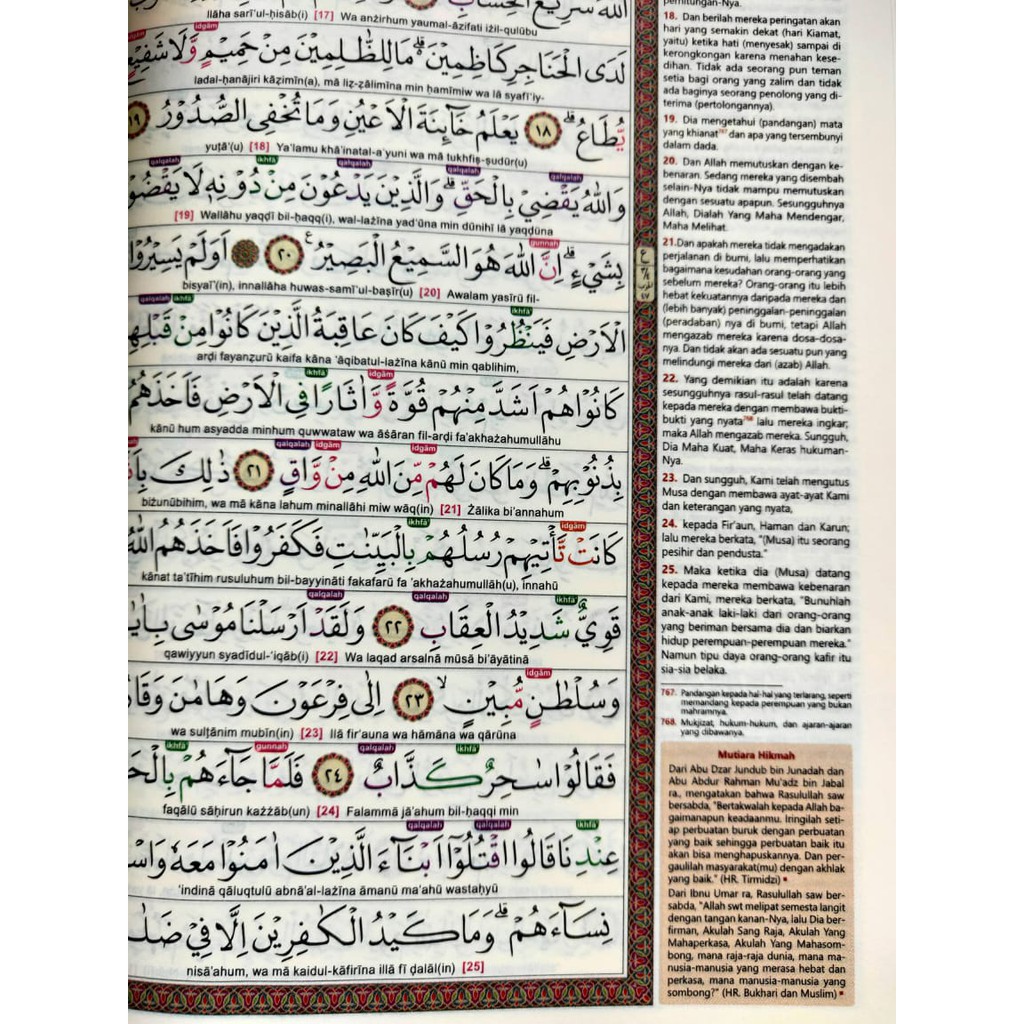 اللّٰهَ سَرِيْعُ الْحِسَابِ
illāha sarī'ul-ḥisāb(i) [17] Wa anżirhum yaumal-āzifati iżil-qulūbu
idgām
لَدَى الْحَنَاجِرِ كَاظِمِيْنَ ەۗ مَا لِلظّٰلِمِيْنَ مِنْ حَمِيْمٍ وَّلَا شَفِيْعٍ
ladal-ḥanājiri kāẓimīn(a), mā liẓ-ẓālimīna min ḥamīmiw wa lā syafī'iy-
يُّطَاعُۗ ١٨ يَعْلَمُ خَاۤىِٕنَةَ الْاَعْيُنِ وَمَا تُخْفِى الصُّدُوْرُ ١٩
yuṭā'(u) [18] Ya'lamu khā'inatal-a'yuni wa mā tukhfiṣ-ṣudūr(u)
qalqalah ikhfā' qalqalah qalqalah qalqalah
وَاللّٰهُ يَقْضِيْ بِالْحَقِّۗ وَالَّذِيْنَ يَدْعُوْنَ مِنْ دُوْنِهٖ لَا يَقْضُوْنَ
[19] Wallāhu yaqḍī bil-ḥaqq(i), wal-lażīna yad'ūna min dūnihī lā yaqḍūna
gunnah
بِشَيْءٍۗ اِنَّ اللّٰهَ هُوَ السَّمِيْعُ الْبَصِيْرُ ࣖ ٢٠ اَوَلَمْ يَسِيْرُوْا
bisyai'(in), innallāha huwas-samī'ul-baṣīr(u) [20] Awalam yasīrū fil-
qalqalah ikhfā' ikhfā'
الْاَرْضِ فَيَنْظُرُوْا كَيْفَ كَانَ عَاقِبَةُ الَّذِيْنَ كَانُوْا مِنْ قَبْلِهِمْ
arḍi fayanẓurū kaifa kāna 'āqibatul-lażīna kānū min qablihim,
ikhfā' idgām
كَانُوْا هُمْ اَشَدَّ مِنْهُمْ قُوَّةً وَّاٰثَارًا فِى الْاَرْضِ فَاَخَذَهُمُ
kānū hum asyadda minhum quwwataw wa āṡāran fil-arḍi fa'akhażahumullāhu
qalqalah idgām idgām
بِذُنُوْبِهِمْۗ وَمَا كَانَ لَهُمْ مِّنَ اللّٰهِ مِنْ وَّاقٍ ٢١ ذٰلِكَ بِاَنَّهُمْ
biżunūbihim, wa mā kāna lahum minallāhi miw wāq(in) [21] Żālika bi'annahum
ikhfā' idgām
كَانَتْ تَّأْتِيْهِمْ رُسُلُهُمْ بِالْبَيِّنٰتِ فَكَفَرُوْا فَاَخَذَهُمُ اللّٰهُ
kānat ta'tīhim rusuluhum bil-bayyināti fakafarū fa 'akhażahumullāh(u), innahū
qalqalah qalqalah ikhfā'
قَوِيٌّ شَدِيْدُ الْعِقَابِ ٢٢ وَلَقَدْ اَرْسَلْنَا مُوْسٰى بِاٰيٰتِنَا
qawiyyun syadīdul-'iqāb(i) [22] Wa laqad arsalnā mūsā bi'āyātinā
idgām
وَسُلْطٰنٍ مُّبِيْنٍۙ ٢٣ اِلٰى فِرْعَوْنَ وَهَامٰنَ وَقَارُوْنَ
wa sulṭānim mubīn(in) [23] Ilā fir'auna wa hāmāna wa qārūna
ikhfā' gunnah qalqalah ikhfā'
فَقَالُوْا سٰحِرٌ كَذَّابٌ ٢٤ فَلَمَّا جَاۤءَهُمْ بِالْحَقِّ
faqālū sāḥirun każżāb(un) [24] Falammā jā'ahum bil-ḥaqqi min
qalqalah qalqalah ikhfā'
عِنْدِنَا قَالُوا اقْتُلُوْٓا اَبْنَاۤءَ الَّذِيْنَ اٰمَنُوْا مَعَهٗ وَاسْتَحْيُوْا
'indinā qāluqtulū abnā'al-lażīna āmanū ma'ahū wastaḥyū
نِسَاۤءَهُمْۗ وَمَا كَيْدُ الْكٰفِرِيْنَ اِلَّا فِيْ ضَلٰلٍ
nisā'ahum, wa mā kaidul-kāfirīna illā fī ḍalāl(in) [25]
perhitungan-Nya.
18. Dan berilah mereka peringatan akan
hari yang semakin dekat (hari Kiamat,
yaitu) ketika hati (menyesak) sampai di
kerongkongan karena menahan kese-
dihan. Tidak ada seorang pun teman
setia bagi orang yang zalim dan tidak
ada baginya seorang penolong yang di-
terima (pertolongannya).
19. Dia mengetahui (pandangan) mata
yang khianat767 dan apa yang tersembunyi
dalam dada.
20. Dan Allah memutuskan dengan ke-
benaran. Sedang mereka yang disembah
selain-Nya tidak mampu memutuskan
dengan sesuatu apapun. Sesungguhnya
Allah, Dialah Yang Maha Mendengar,
Maha Melihat.
21.Dan apakah mereka tidak mengadakan
perjalanan di bumi, lalu memperhatikan
bagaimana kesudahan orang-orang yang
sebelum mereka? Orang-orang itu lebih
hebat kekuatannya daripada mereka dan
(lebih banyak) peninggalan-peninggalan
(peradaban) nya di bumi, tetapi Allah
mengazab mereka karena dosa-dosa-
nya. Dan tidak akan ada sesuatu pun yang
melindungi mereka dari (azab) Allah.
22. Yang demikian itu adalah karena
sesungguhnya rasul-rasul telah datang
kepada mereka dengan membawa bukti-
bukti yang nyata768 lalu mereka ingkar;
maka Allah mengazab mereka. Sungguh,
Dia Maha Kuat, Maha Keras hukuman-
Nya.
23. Dan sungguh, Kami telah mengutus
Musa dengan membawa ayat-ayat Kami
dan keterangan yang nyata,
24. kepada Fir'aun, Haman dan Karun;
lalu mereka berkata, "(Musa) itu seorang
pesihir dan pendusta."
25. Maka ketika dia (Musa) datang
kepada mereka membawa kebenaran
dari Kami, mereka berkata, "Bunuhlah
anak-anak laki-laki dari orang-orang
yang beriman bersama dia dan biarkan
hidup perempuan-perempuan mereka."
Namun tipu daya orang-orang kafir itu
sia-sia belaka.
767. Pandangan kepada hal-hal yang terlarang, seperti
memandang kepada perempuan yang bukan
mahramnya.
768. Mukjizat, hukum-hukum, dan ajaran-ajaran
yang dibawanya.
Mutiara Hikmah
Dari Abu Dzar Jundub bin Junadah dan
Abu Abdur Rahman Mu'adz bin Jabal
ra., mengatakan bahwa Rasulullah saw
bersabda, "Bertakwalah kepada Allah ba-
gaimanapun keadaanmu. Iringilah seti-
ap perbuatan buruk dengan perbuatan
yang baik sehingga perbuatan baik itu
akan bisa menghapuskannya. Dan per-
gaulilah masyarakat(mu) dengan akhlak
yang baik." (HR. Tirmidzi)
Dari Ibnu Umar ra, Rasulullah saw ber-
sabda, "Allah swt melipat semesta langit
dengan tangan kanan-Nya, lalu Dia ber-
firman, Akulah Sang Raja, Akulah Yang
Mahaperkasa, Akulah Yang Mahasom-
bong, mana raja-raja dunia, mana ma-
nusia-manusia yang merasa hebat dan
perkasa, mana manusia-manusia yang
sombong?" (HR. Bukhari dan Muslim)